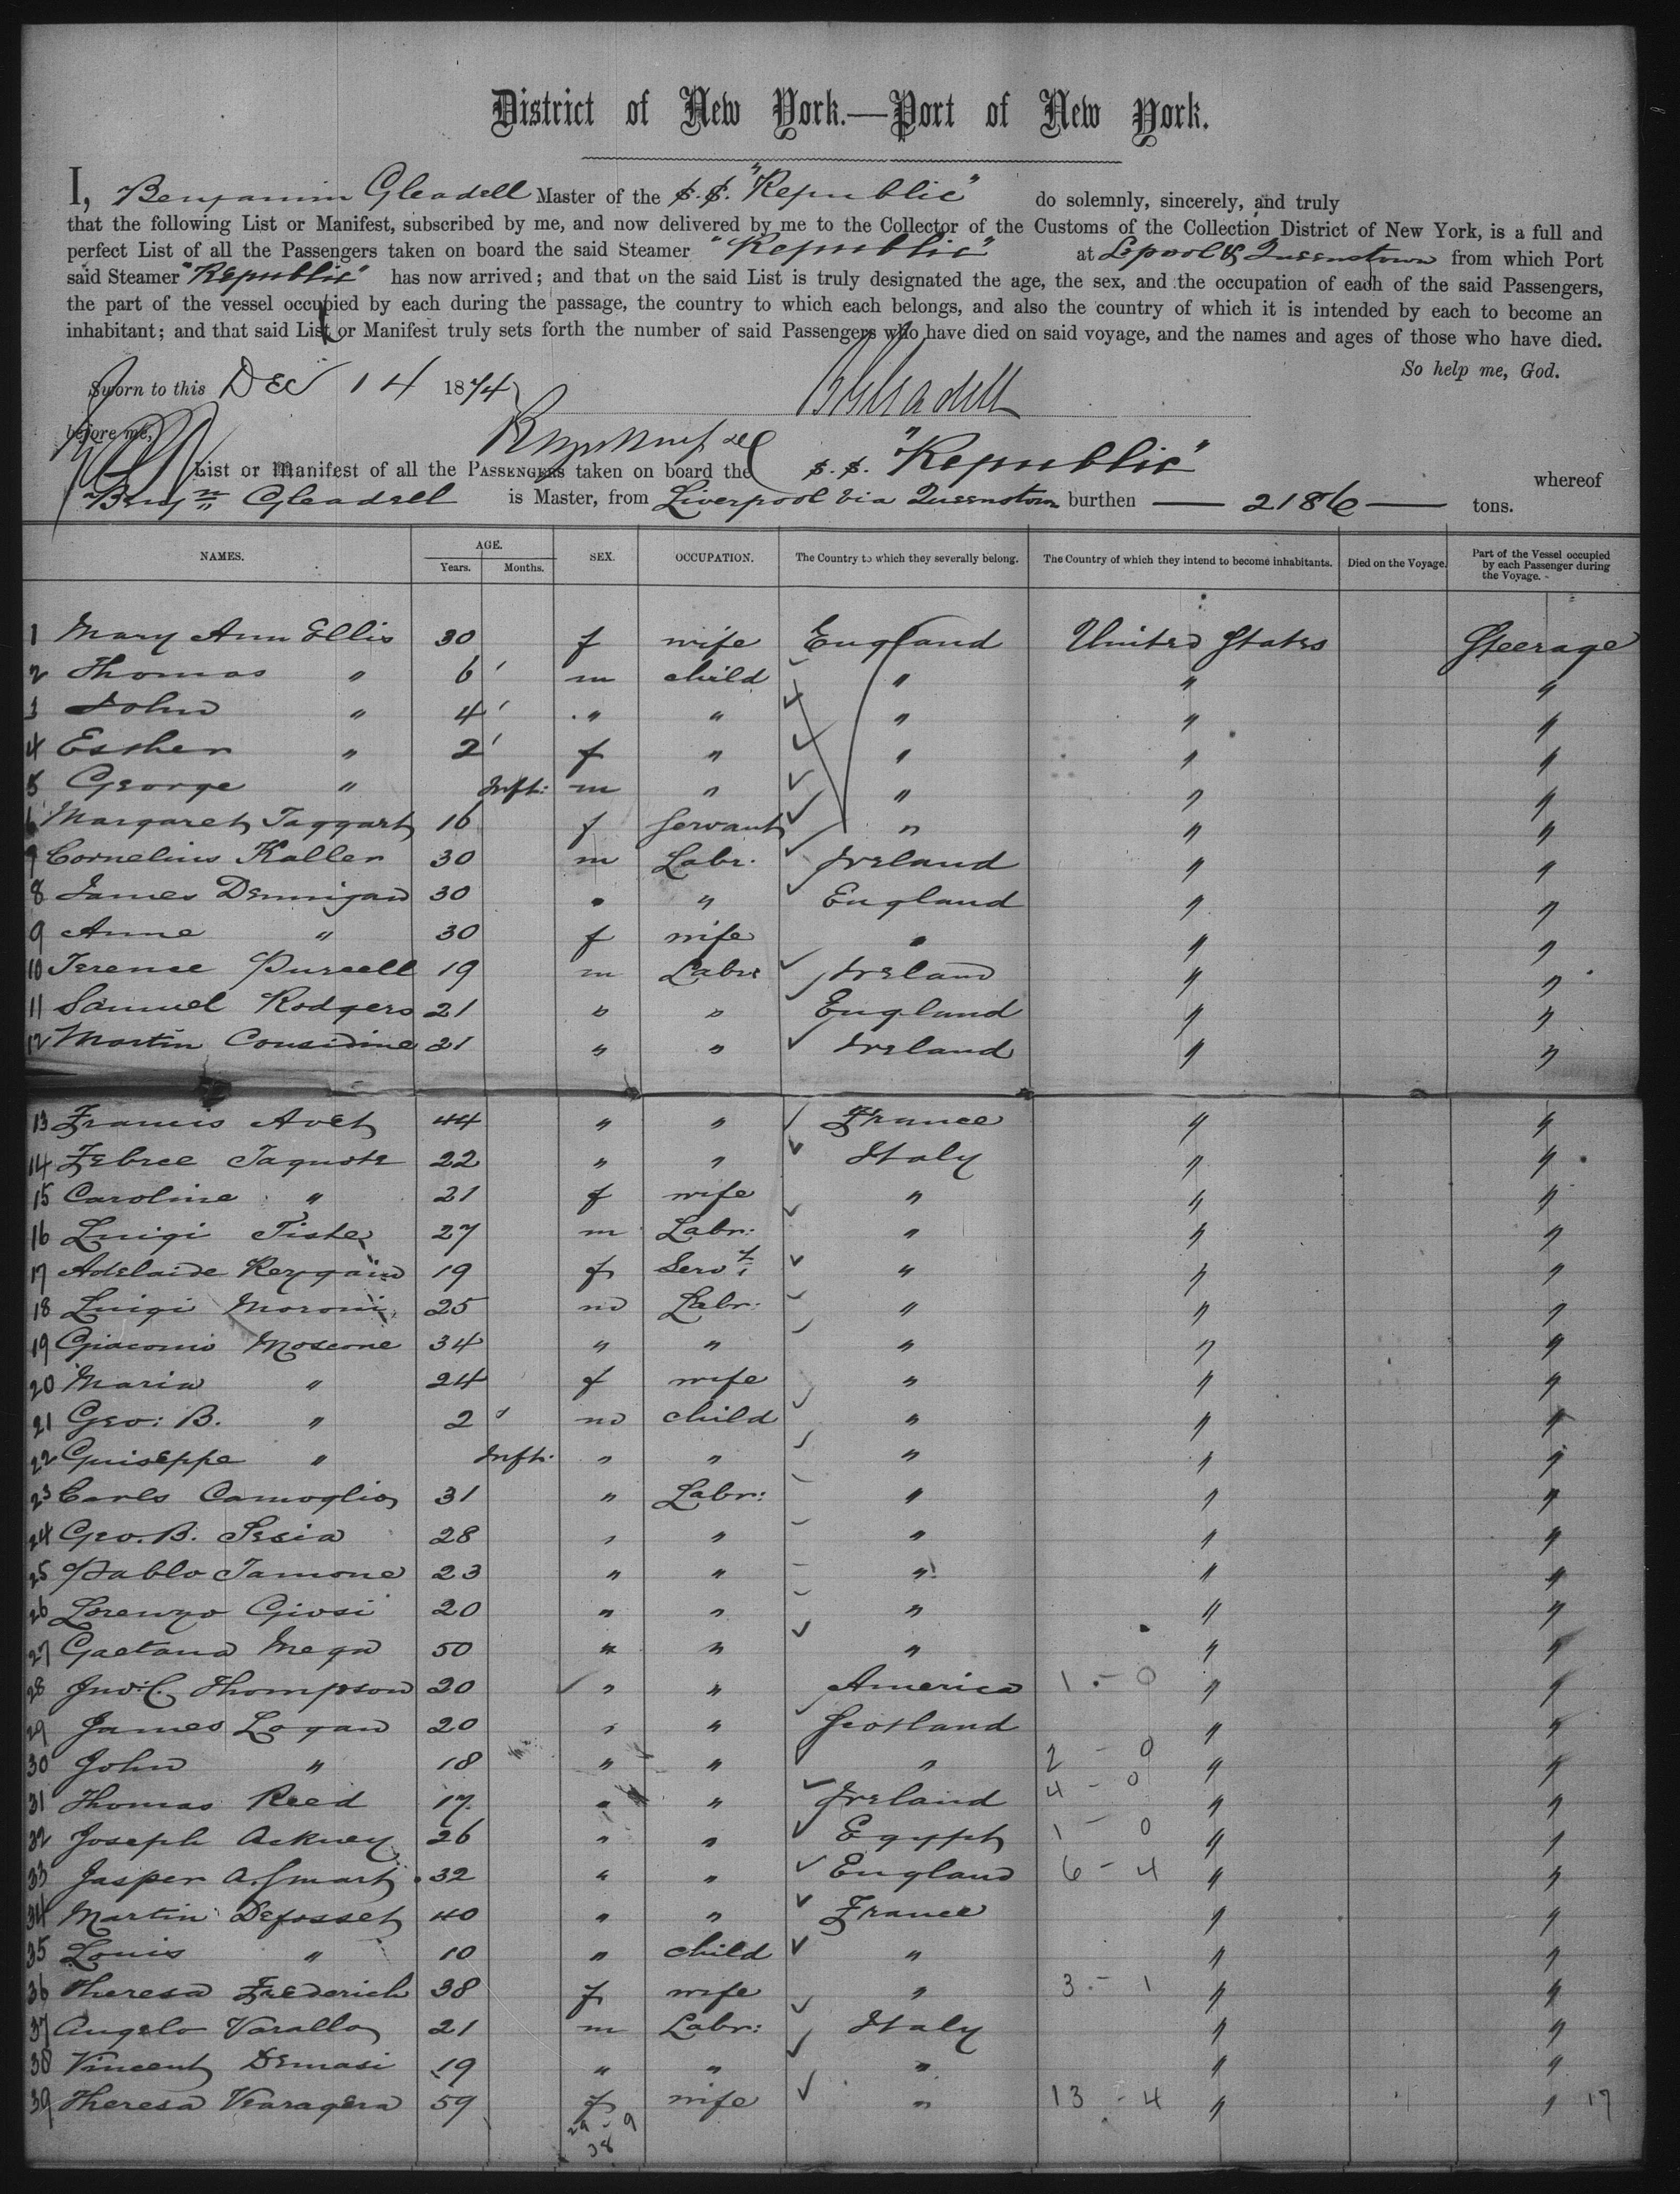 District of New York.—Port of New York.
I, Benjamin Gleadell Master of the S.S. "Republic" do solemnly, sincerely, and truly
that the following List or Manifest, subscribed by me, and now delivered by me to the Collector of the Customs of the Collection District of New York, is a full and
perfect List of all the Passengers taken on board the said Steamer "Republic" at Lpool & Queenstown from which Port
said Steamer "Republic" has now arrived; and that on the said List is truly designated the age, the sex, and the occupation of each of the said Passengers,
the part of the vessel occupied by each during the passage, the country to which each belongs, and also the country of which it is intended by each to become an
inhabitant; and that said List or Manifest truly sets forth the number of said Passengers who have died on said voyage, and the names and ages of those who have died.
So help me, God.
Sworn to this Dec 14 1874 B Gleadell
before me,
List or Manifest of all the PASSENGERS taken on board the S.S. "Republic" whereof
Benjn Gleadell is Master, from Liverpool via Queenstown burthen — 2186 — tons.
NAMES. AGE. Years. Months. SEX. OCCUPATION. The Country to which they severally belong. The Country of which they intend to become inhabitants. Died on the Voyage. Part of the Vessel occupied by each Passenger during the Voyage.
1 Mary Ann Ellis 30 f wife England United States Steerage
2 Thomas " 6 m child " " "
3 John " 4 " " " " "
4 Esther " 2 f " " " "
5 George " Inft: m " " " "
6 Margaret Taggart 16 f Servant " " "
7 Cornelius Kaller 30 m Labr. Ireland " "
8 James Dennigan 30 " " England " "
9 Anne " 30 f wife " " "
10 Terence Purcell 19 m Labr: Ireland " "
11 Samuel Rodgers 21 " " England " "
12 Martin Considine 21 " " Ireland " "
13 Francis Avet 44 " " France " "
14 Febree Taquote 22 " " Italy " "
15 Caroline " 21 f wife " " "
16 Luigi Tiste 27 m Labr: " " "
17 Adelaide 19 f Servt " " "
18 Luigi Moroni 25 m Labr: " " "
19 Giacomo Moscone 34 " " " " "
20 Maria " 24 f wife " " "
21 Geo: B. " 2 m child " " "
22 Guiseppe " Inft: " " " " "
23 Carlo Camoglio 31 " Labr: " " "
24 Geo. B. Sesia 28 " " " " "
25 Pablo Tamone 23 " " " " "
26 Lorenzo Giosi 20 " " " " "
27 Gaetana Mega 50 " " " " "
28 Jno: C. Thompson 20 " " America 1 - 0 " "
29 James Logan 20 " " Scotland " "
30 John " 18 " " " 2 - 0 " "
31 Thomas Reed 17 " " Ireland 4 - 0 " "
32 Joseph Ackney 26 " " Egypt 1 - 0 " "
33 Jasper A. Smart 32 " " England 6 - 4 " "
34 Martin Defosset 40 " " France " "
35 Louis " 10 " child " " "
36 Theresa Frederich 38 f wife " 3 - 1 " "
37 Angelo Varallo 21 m Labr: Italy " "
38 Vincent Demasi 19 " " " " "
39 Theresa Vearagera 59 f wife " 13 - 4 " " 17
29 - 9
38